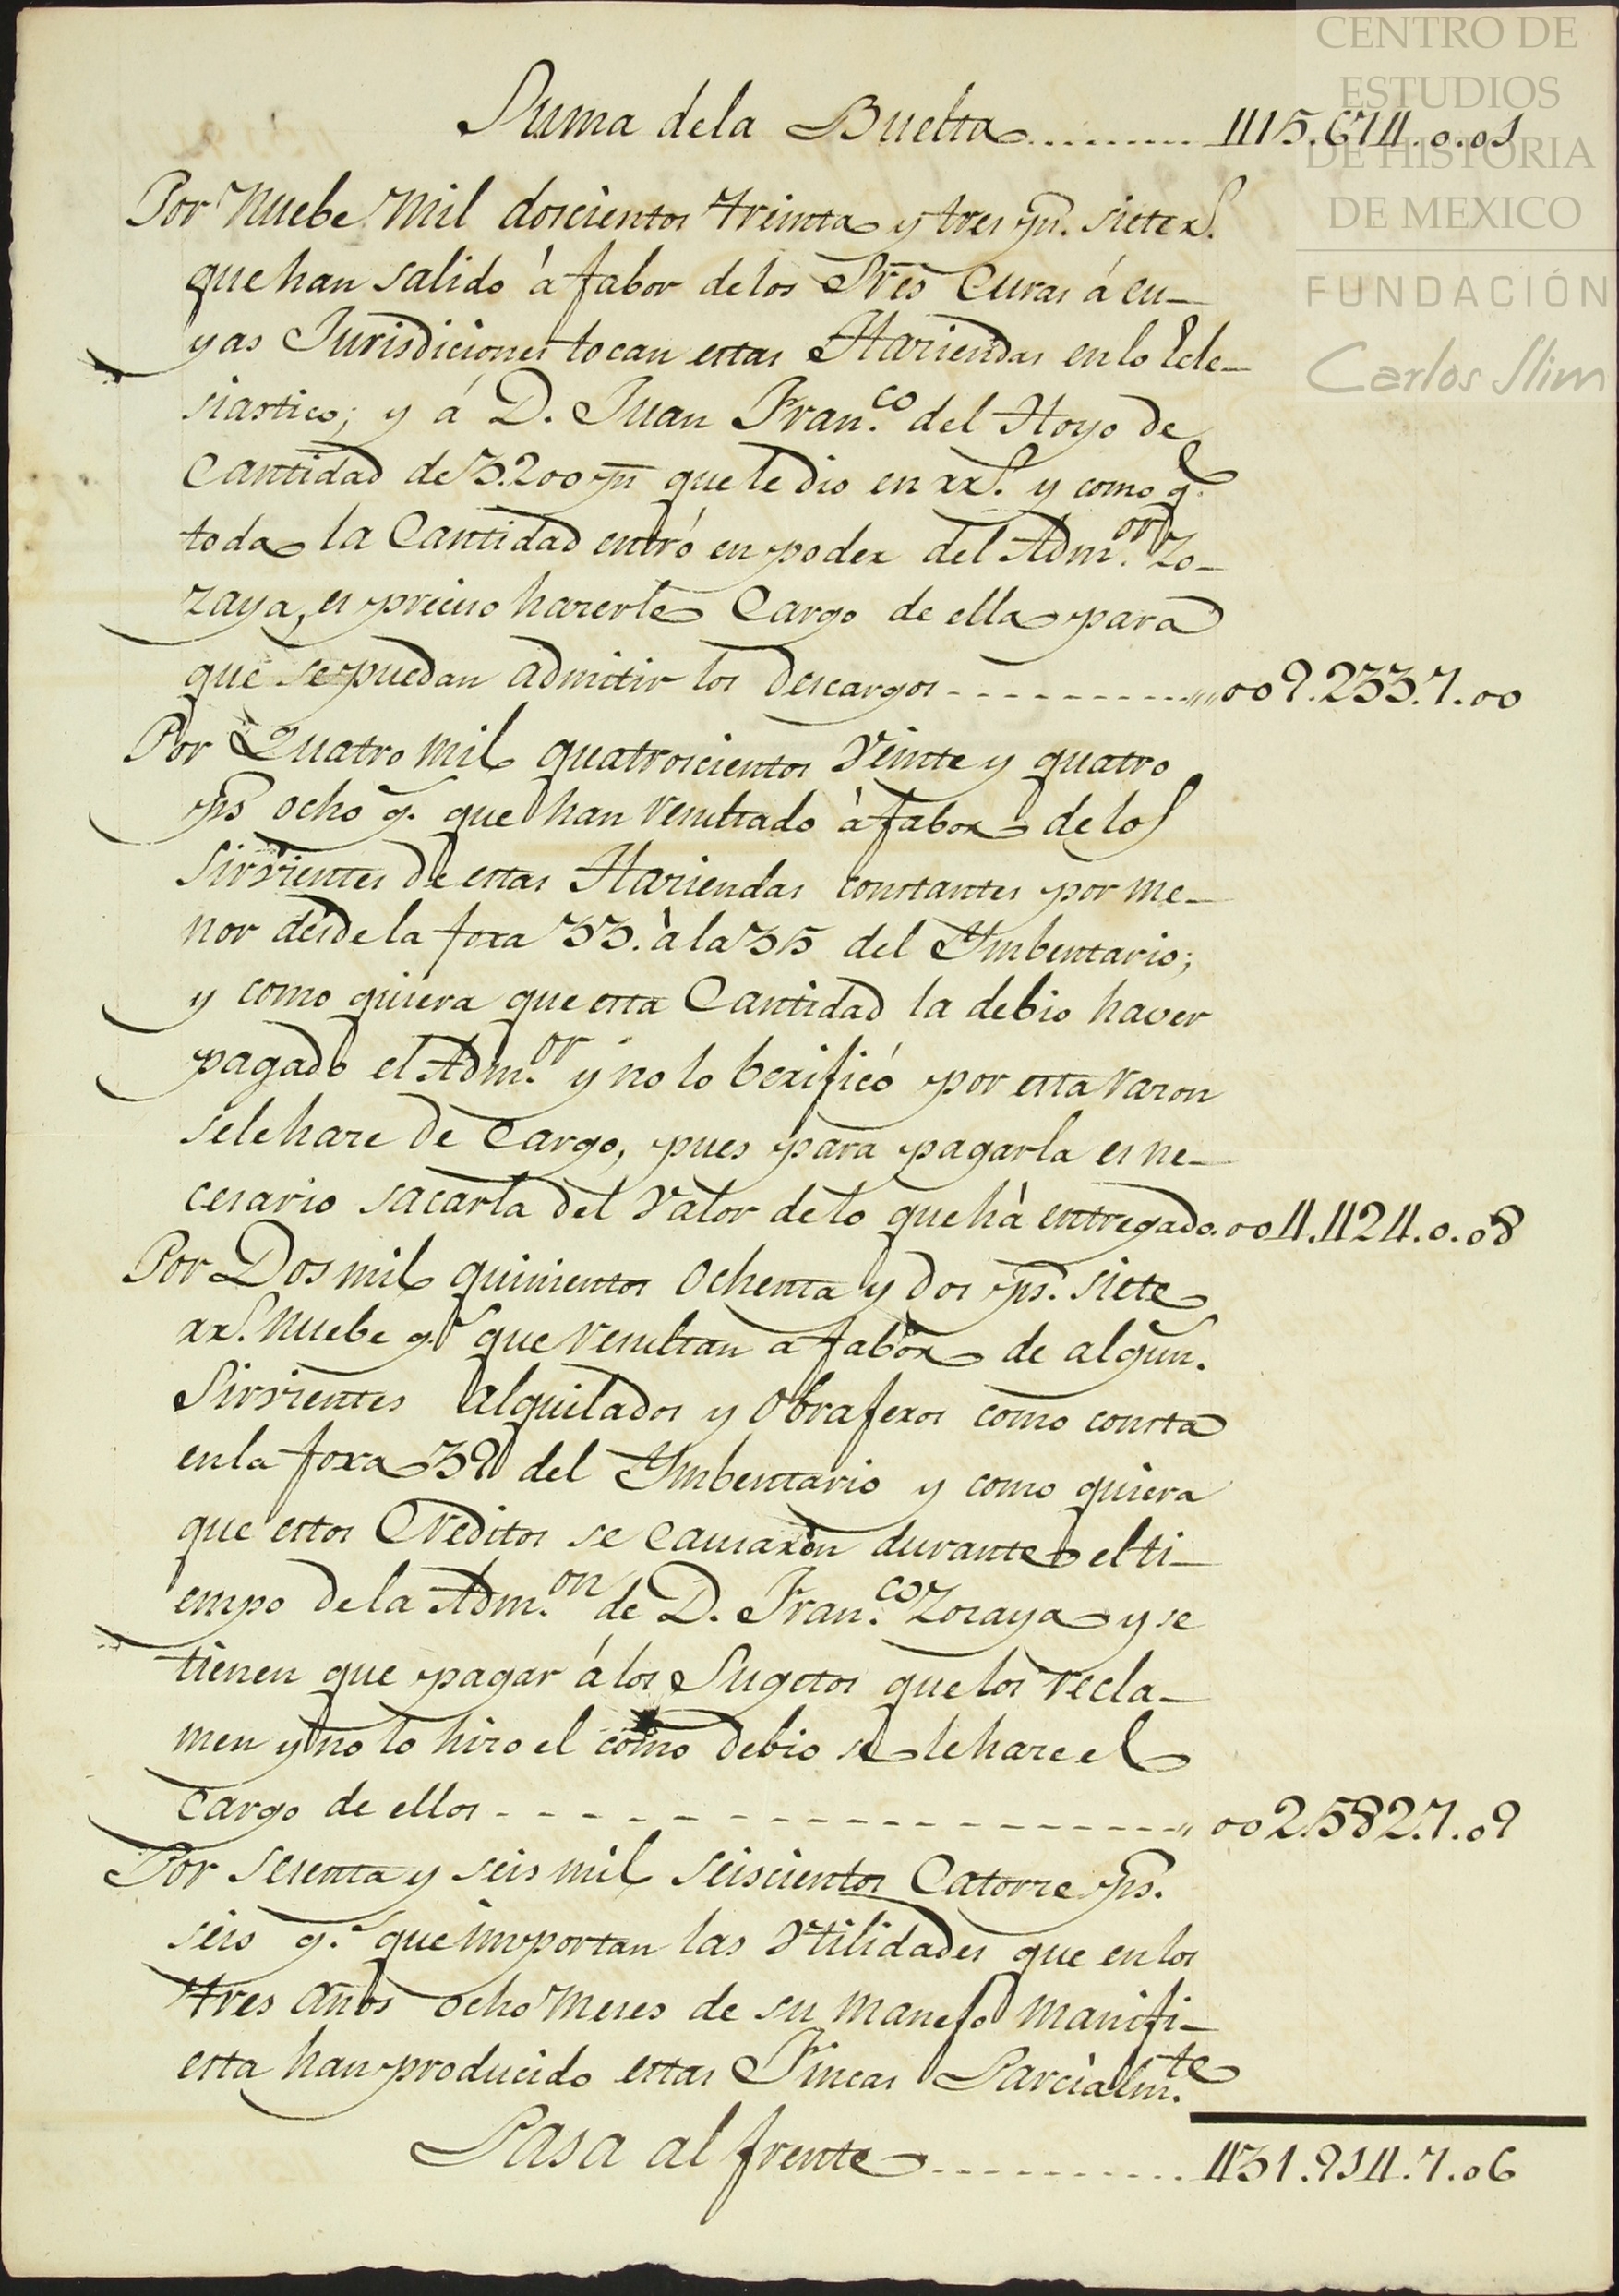 Suma dela Buelta.......... 415.674.0.01
Por Nuebe Mil doscientos treinta y tres ps. siete rs.
que han salido à fabor delos Sres Curas á cu-
yas Jurisdiciones tocan estas Haziendas en lo Ecle-
siastico; y á D. Juan Fran.co del Hoyo de
Cantidad de 3.200 ps que le dio en rrs. y como q.e
toda la Cantidad entró en poder del Adm.or Zo-
zaya, es preciso hazerle Cargo de ella para
que se puedan admitir los descargos - - - - - - - - - - 009.233.7.00
Por Quatro mil quatrocientos Veinte y quatro
ps ocho g.s que han resultado à fabor de los
Sirvientes de estas Haziendas constantes por me-
nor desde la foxa 33. à la 35 del Ymbentario;
y como quiera que esta Cantidad la debio haver
pagado el Adm.or y no lo berificó por esta razon
sele haze de Cargo, pues para pagarla es ne-
cesario sacarla del Valor delo que hà entregado. 004.424.0.08
Por Dos mil quinientos ochenta y dos ps. siete
rrs. Nuebe g.s que resultan a fabor de algun.s
Sirvientes alquilados y Obrajeros como consta
en la foxa 39 del Ymbentario y como quiera
que estos Creditos se causaron durante el ti-
empo de la Adm.on de D. Fran.co Zozaya y se
tienen que pagar á los Sugetos que los recla-
men y no lo hizo el como debio se le haze el
Cargo de ellos - - - - - - - - - - - - - - - - 002.582.7.09
Por sesenta y seis mil seiscientos Catorze ps.
seis g.s que importan las Vtilidades que en los
tres años ocho Meses de su Manejo Manifi-
esta han producido estas Fincas Parcialm.te
Pasa al frente .......... 431.914.7.06
CENTRO DE
ESTUDIOS
DE HISTORIA
DE MEXICO
FUNDACIÓN
Carlos Slim